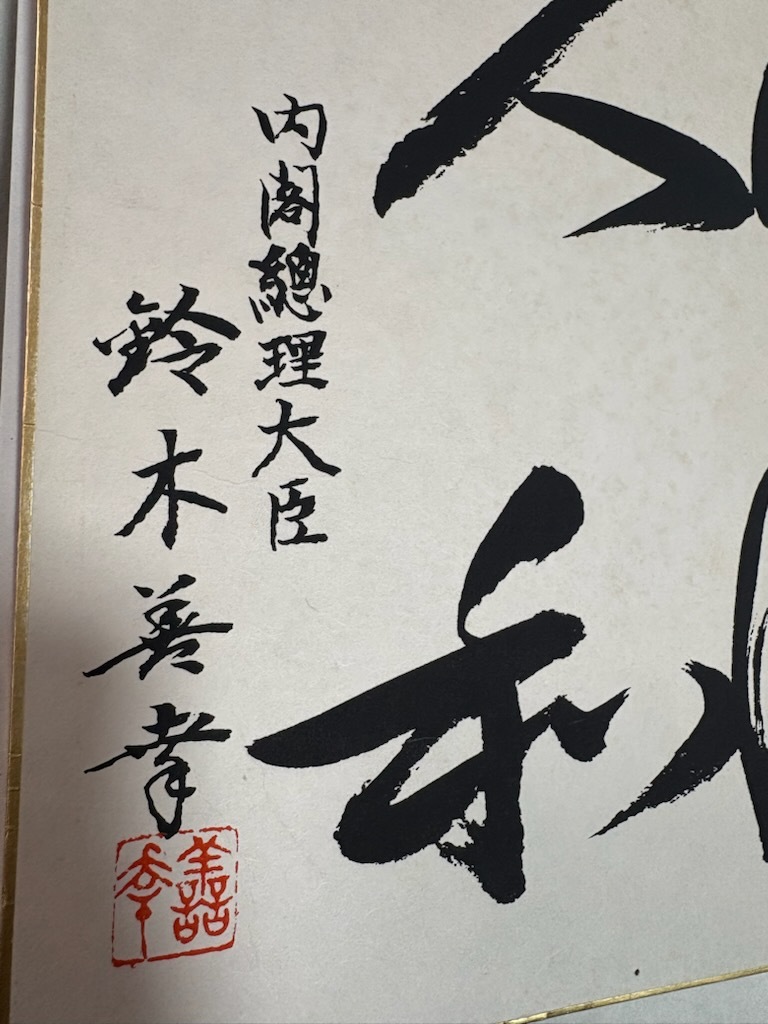 和
内閣總理大臣
鈴木善幸
善幸